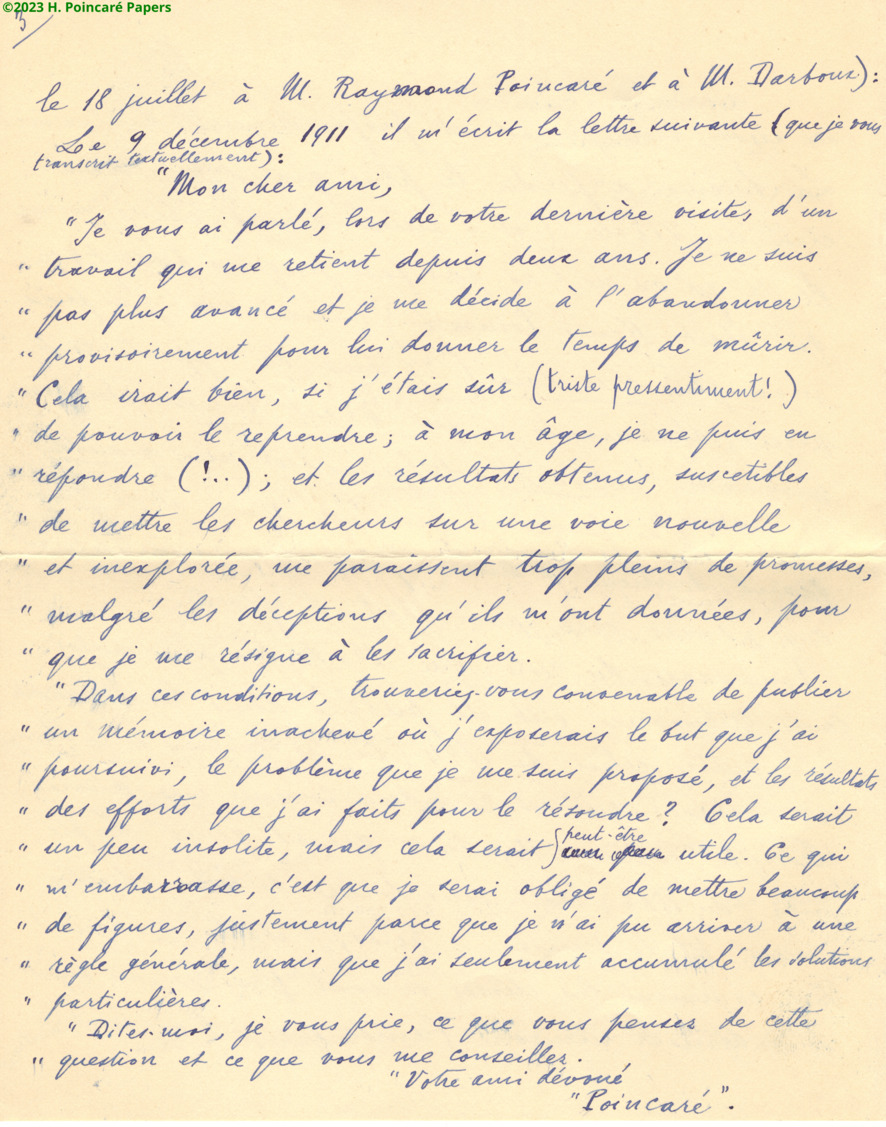 ©2023 H. Poincaré Papers
3
le 18 juillet à M. Raymond Poincaré et à M. Darboux):
Le 9 décembre 1911 il m'écrit la lettre suivante (que je vous
transcrit textuellement):
"Mon cher ami,
"Je vous ai parlé, lors de votre dernière visite, d'un
" travail qui me retient depuis deux ans. Je ne suis
" pas plus avancé et je me décide à l'abandonner
" provisoirement pour lui donner le temps de mûrir.
" Cela irait bien, si j'étais sûr (triste pressentiment!)
" de pouvoir le reprendre; à mon âge, je ne puis en
" répondre (!..); et les résultats obtenus, suscetibles
" de mettre les chercheurs sur une voie nouvelle
" et inexplorée, me paraissent trop pleins de promesses,
" malgré les déceptions qu'ils m'ont données, pour
" que je me résigne à les sacrifier.
" Dans ces conditions, trouveriez-vous convenable de publier
" un mémoire inachevé où j'exposerais le but que j'ai
" poursuivi, le problème que je me suis proposé, et les résultats
" des efforts que j'ai faits pour le résoudre? Cela serait
" un peu insolite, mais cela serait peut-être utile. Ce qui
" m'embarrasse, c'est que je serai obligé de mettre beaucoup
" de figures, justement parce que je n'ai pu arriver à une
" règle générale, mais que j'ai seulement accumulé les solutions
" particulières.
" Dites-moi, je vous prie, ce que vous pensez de cette
" question et ce que vous me conseillez.
"Votre ami dévoué
"Poincaré".